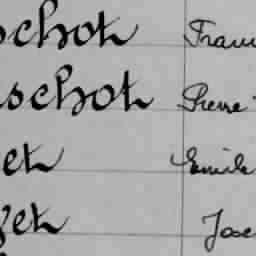 schot Fran
schot Pierre
et Emile
zet Jose